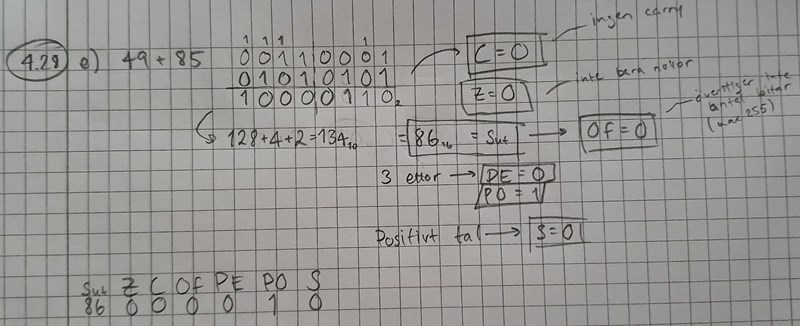 4.29 e) 49 + 85
1 1 1 1
0 0 1 1 0 0 0 1
0 1 0 1 0 1 0 1
1 0 0 0 0 1 1 0₂
128+4+2=134₁₀ = 86₁₆ = Sut
C = 0
ingen carry
Z = 0
inte bara nollor
Of = 0
överstiger inte
antal bitar
(max 255)
3 ettor → PE = 0
PO = 1
Positivt tal → S = 0
Sut Z C Of PE PO S
86 0 0 0 0 1 0